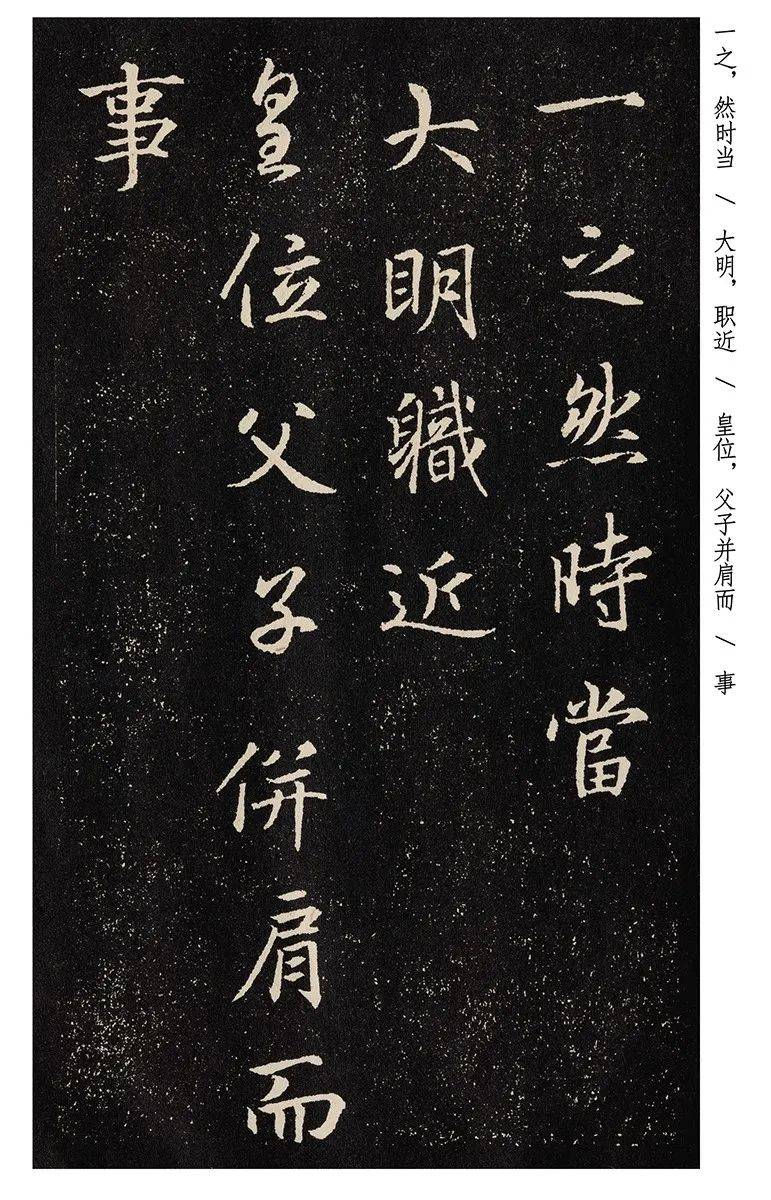 一之然時當
大明職近
皇位父子併肩而
事
一之，然时当 / 大明，职近 / 皇位，父子并肩而 / 事